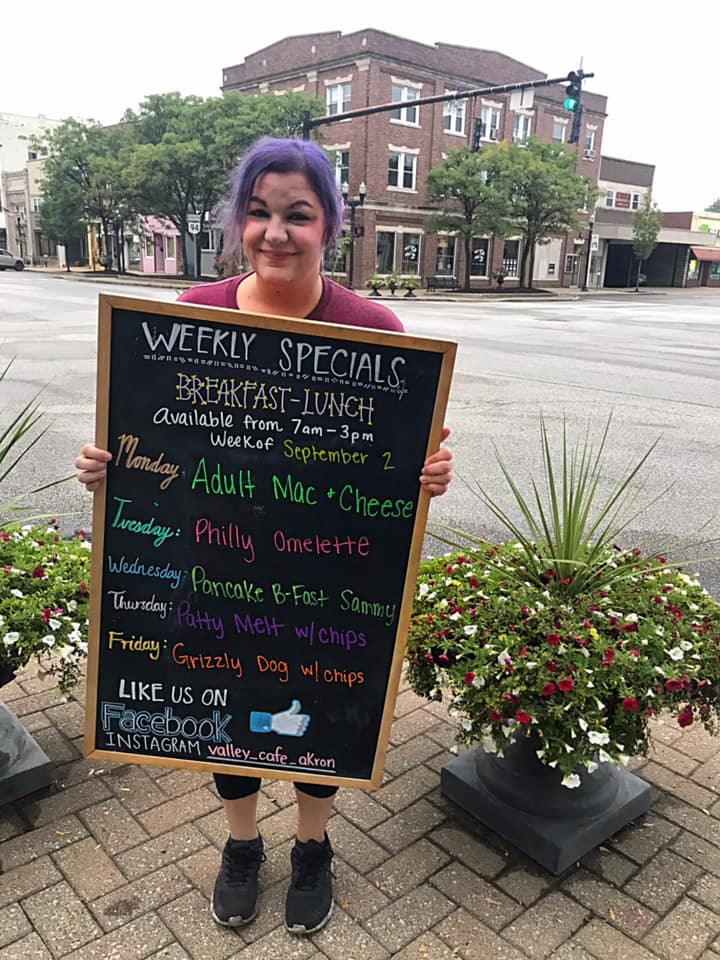 WEEKLY SPECIALS
BREAKFAST-LUNCH
Available from 7am-3pm
Week of September 2
Monday: Adult Mac + Cheese
Tuesday: Philly Omelette
Wednesday: Pancake B-Fast Sammy
Thursday: Patty Melt w/chips
Friday: Grizzly Dog w/chips
LIKE US ON
Facebook
INSTAGRAM valley_cafe_akron